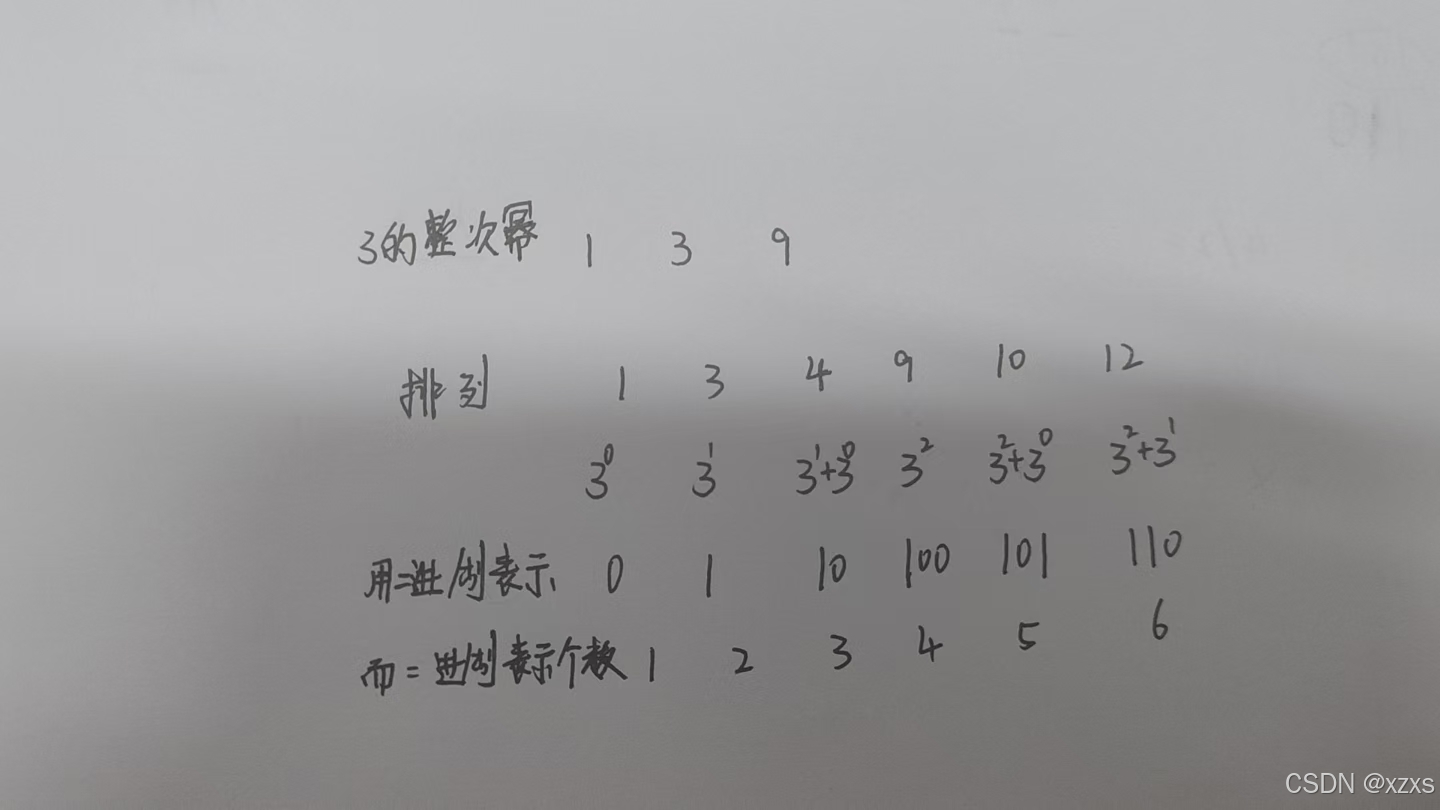 3的整次幂 1 3 9
排列 1 3 4 9 10 12
3⁰ 3¹ 3¹+3⁰ 3² 3²+3⁰ 3²+3¹
用二进制表示 0 1 10 100 101 110
而二进制表示个数 1 2 3 4 5 6
CSDN @xzxs